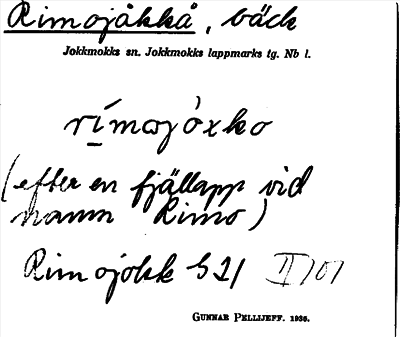 Rimojåkkå, bäck
Jokkmokks sn. Jokkmokks lappmarks tg. Nb l.
rímojòxko
(efter en fjällapp vid
namn Rimo)
Rimojokk S 21 II 101
GUNNAR PELLIJEFF. 1936.